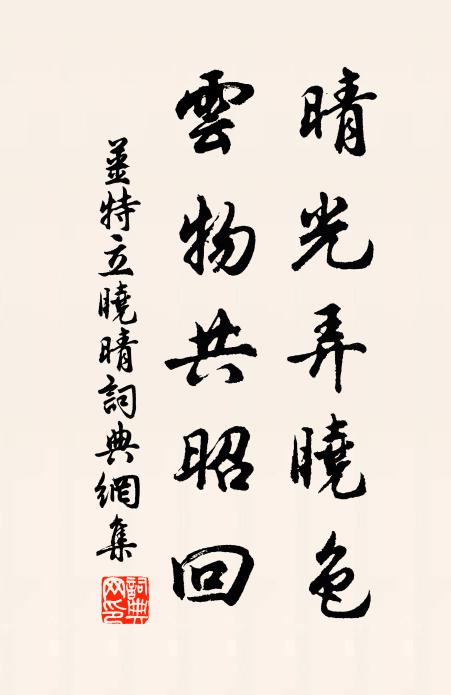 晴光弄曉色
雲物共昭回
姜特立曉晴詞典網集
詞典網印